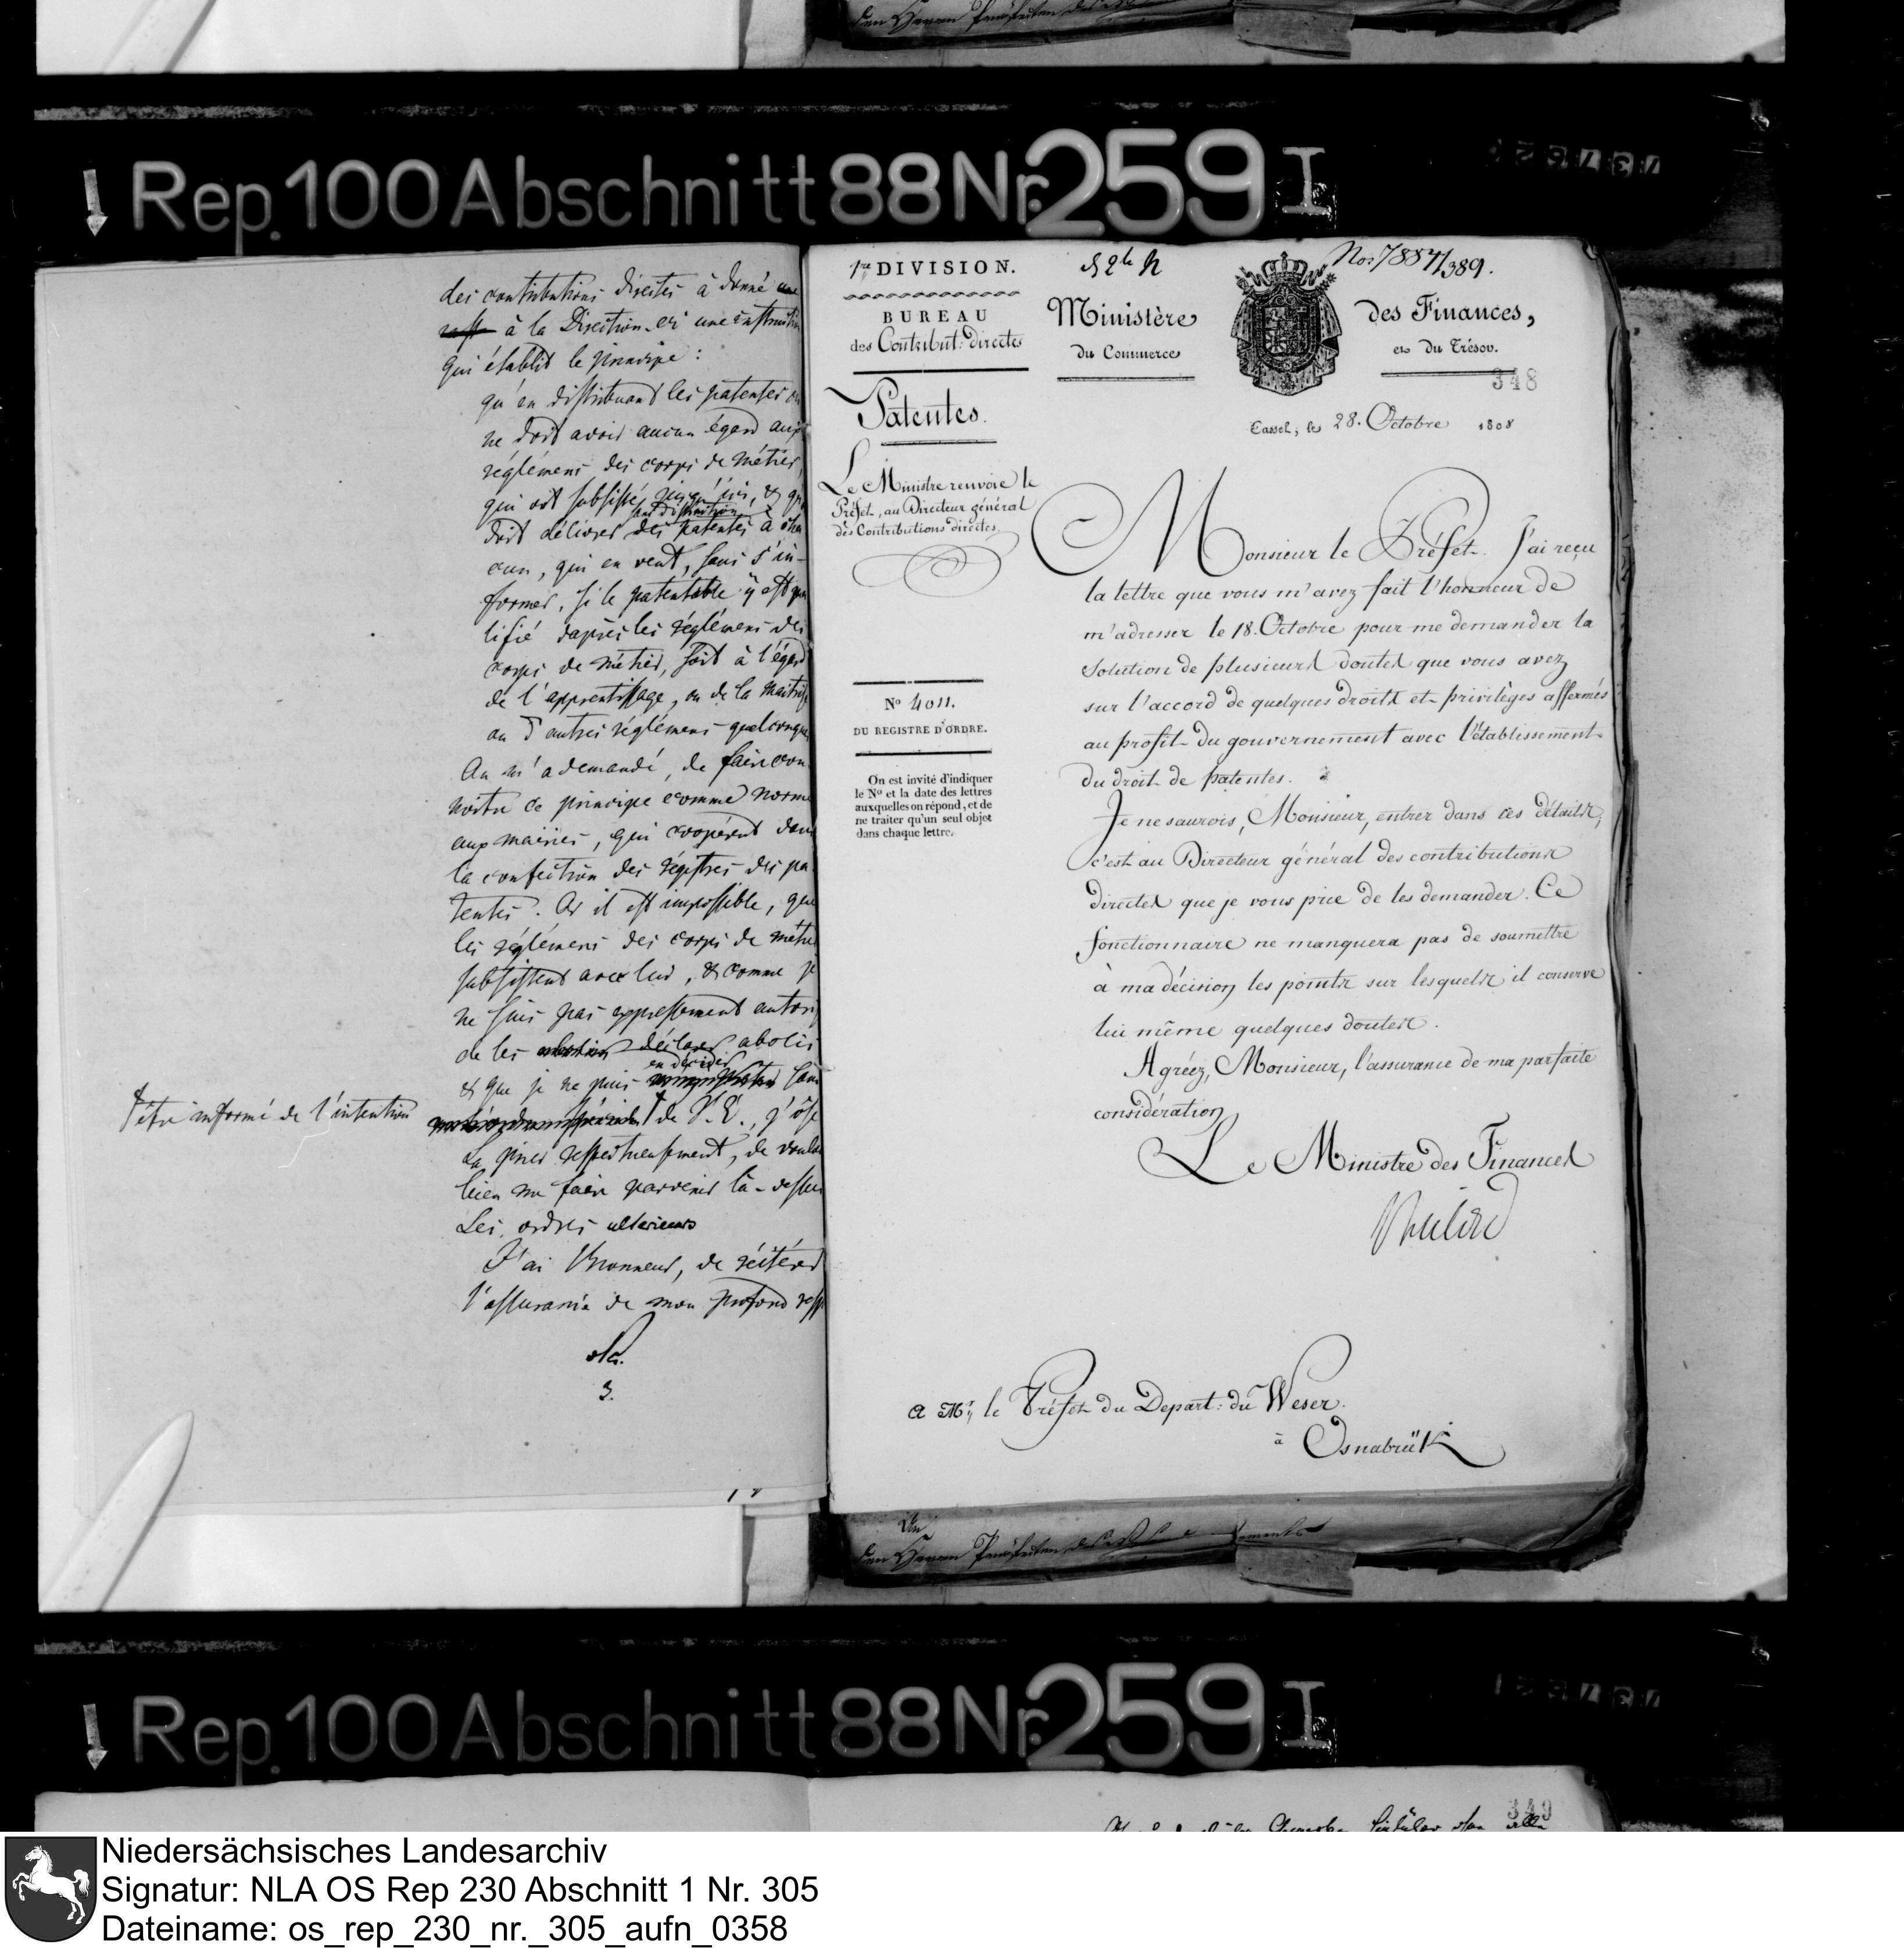 Rep. 100 Abschnitt 88 Nr. 259 I
des contributions directes à donné
à la Direction ici une instruction
qui établit le principe :
qu'en distribuant les patentes on
ne doit avoir aucun égard aux
réglémens des corps de métier,
qui ont subsisté jusqu'ici, & qu'on
sans distinction
doit délivrer des patentes à cha
cun, qui en veut, sans s'in-
former, si le patentable y est qua
lifié d'après les réglémens des
corps de métier, soit à l'égard
de l'apprentissage, ou de la maitrise
ou d'autres réglémens quelconques
On m'a demandé, de faire con
noitre ce principe comme norme
aux mairies, qui coopérent dans
la confection des régistres des pa
tentes. Or il est impossible, que
les réglémens des corps de métier
subsistent avec lui, & comme je
ne suis pas expressement autorisé
de les déclarer abolis
en décider
& que je ne puis sans
être informé de l'intention
de V. E., j'ôse
La prier respectueusement, de vouloir
bien me faire parvenir là-dessus
Ses ordres ulterieurs
J'ai l'honneur, de réitérer
l'assurance de mon profond resp
3.
1re DIVISION.
BUREAU
des Contribut: directes
Nos. 7884/389.
Ministère des Finances,
du Commerce et du Trésor.
348
Patentes.
Cassel, le 28. Octobre 1808
Le Ministre renvoie le
Préfet, au Directeur général
des Contributions directes.
No 4011.
DU REGISTRE D'ORDRE.
On est invité d'indiquer
le No et la date des lettres
auxquelles on répond, et de
ne traiter qu'un seul objet
dans chaque lettre.
Monsieur le Préfet. J'ai reçu
la lettre que vous m'avez fait l'honneur de
m'adresser le 18. Octobre pour me demander la
solution de plusieurs doutes que vous avez
sur l'accord de quelques droits et privilèges affermés
au profit du gouvernement avec l'établissement
du droit de patentes.
Je ne saurois, Monsieur, entrer dans ces détails,
c'est au Directeur général des contributions
directes que je vous prie de les demander. Ce
fonctionnaire ne manquera pas de soumettre
à ma décision les points sur lesquels il conserve
lui même quelques doutes.
Agréez, Monsieur, l'assurance de ma parfaite
considération
Le Ministre des Finances
A Mr. le Préfet du Depart: du Weser.
à Osnabrük
An
den Herrn Präfecten des
Rep. 100 Abschnitt 88 Nr. 259 I
349
Niedersächsisches Landesarchiv
Signatur: NLA OS Rep 230 Abschnitt 1 Nr. 305
Dateiname: os_rep_230_nr._305_aufn_0358